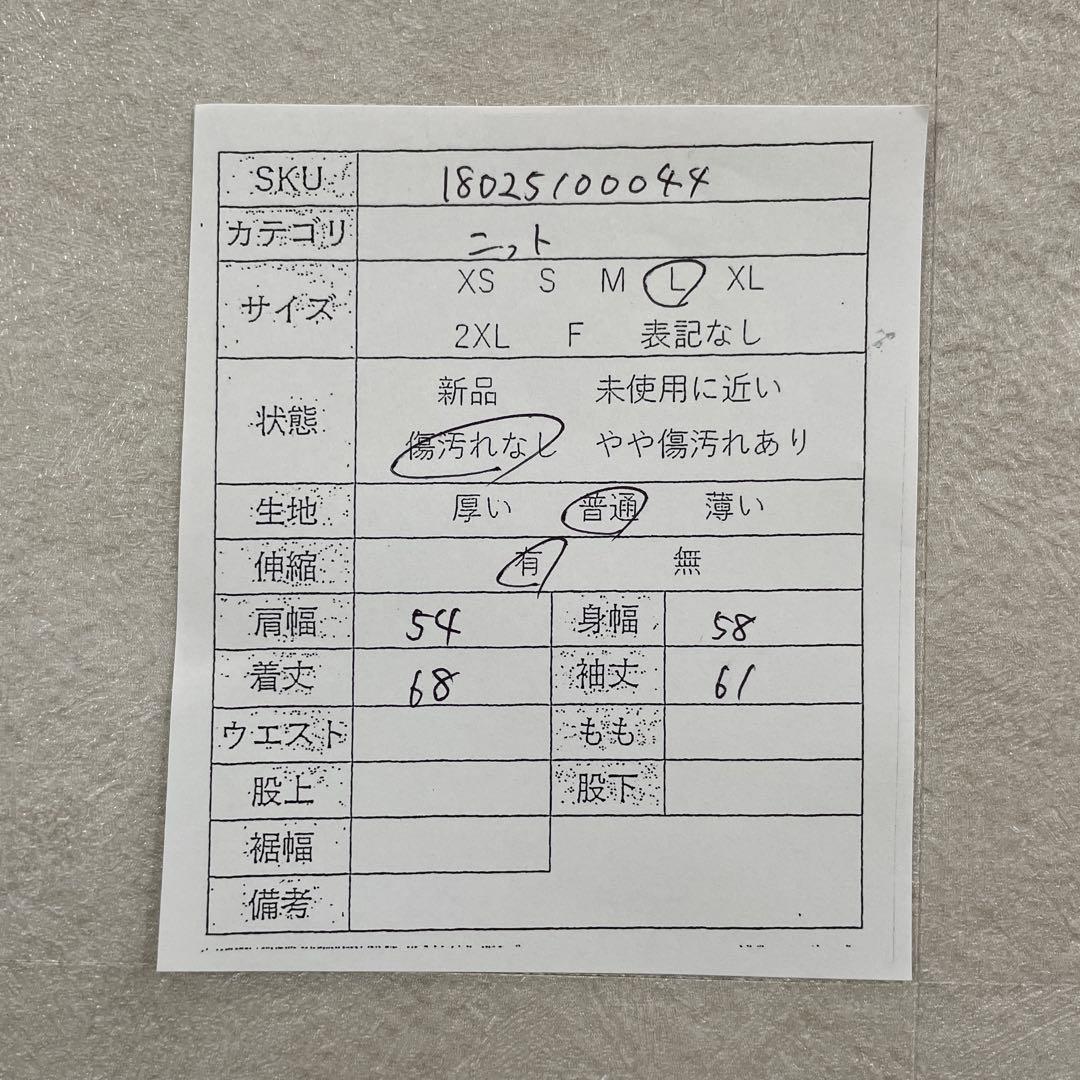 SKU 18025100044
カテゴリ ニット
サイズ XS S M L XL
2XL F 表記なし
状態 新品 未使用に近い
傷汚れなし やや傷汚れあり
生地 厚い 普通 薄い
伸縮 有 無
肩幅 54 身幅 58
着丈 68 袖丈 61
ウエスト もも
股上 股下
裾幅
備考